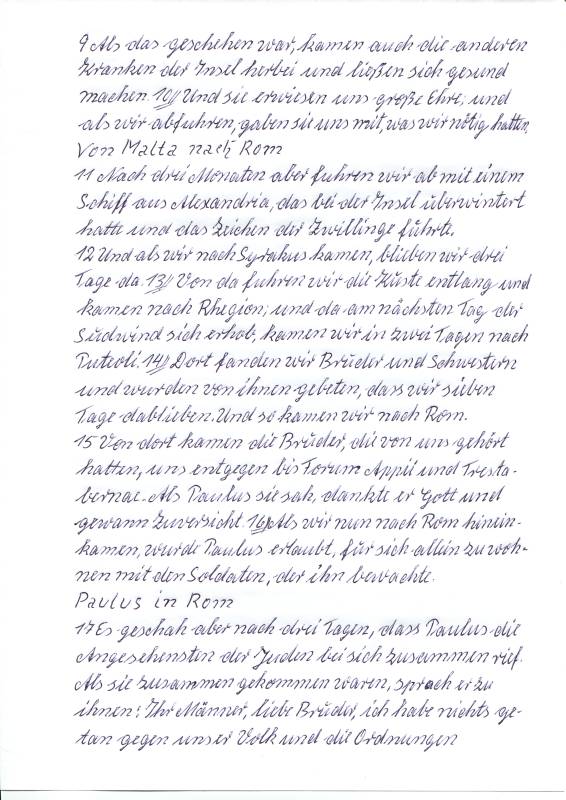 9 Als das geschehen war, kamen auch die anderen
Kranken der Insel herbei und ließen sich gesund
machen. 10// Und sie erwiesen uns große Ehre; und
als wir abfuhren, gaben sie uns mit, was wir nötig hatten.
Von Malta nach Rom
11 Nach drei Monaten aber fuhren wir ab mit einem
Schiff aus Alexandria, das bei der Insel überwintert
hatte und das Zeichen der Zwillinge führte.
12 Und als wir nach Syrakus kamen, blieben wir drei
Tage da. 13// Von da fuhren wir die Küste entlang und
kamen nach Rhegion; und da am nächsten Tag der
Südwind sich erhob, kamen wir in zwei Tagen nach
Puteoli. 14// Dort fanden wir Brüder und Schwestern
und wurden von ihnen gebeten, dass wir sieben
Tage dablieben. Und so kamen wir nach Rom.
15 Von dort kamen die Brüder, die von uns gehört
hatten, uns entgegen bis Forum Appii und Tresta-
bernae. Als Paulus sie sah, dankte er Gott und
gewann Zuversicht. 16// Als wir nun nach Rom hinein-
kamen, wurde Paulus erlaubt, für sich allein zu woh-
nen mit den Soldaten, der ihn bewachte.
Paulus in Rom
17 Es geschah aber nach drei Tagen, dass Paulus die
Angesehensten der Juden bei sich zusammen rief.
Als sie zusammen gekommen waren, sprach er zu
ihnen: Ihr Männer, liebe Brüder, ich habe nichts ge-
tan gegen unser Volk und die Ordnungen